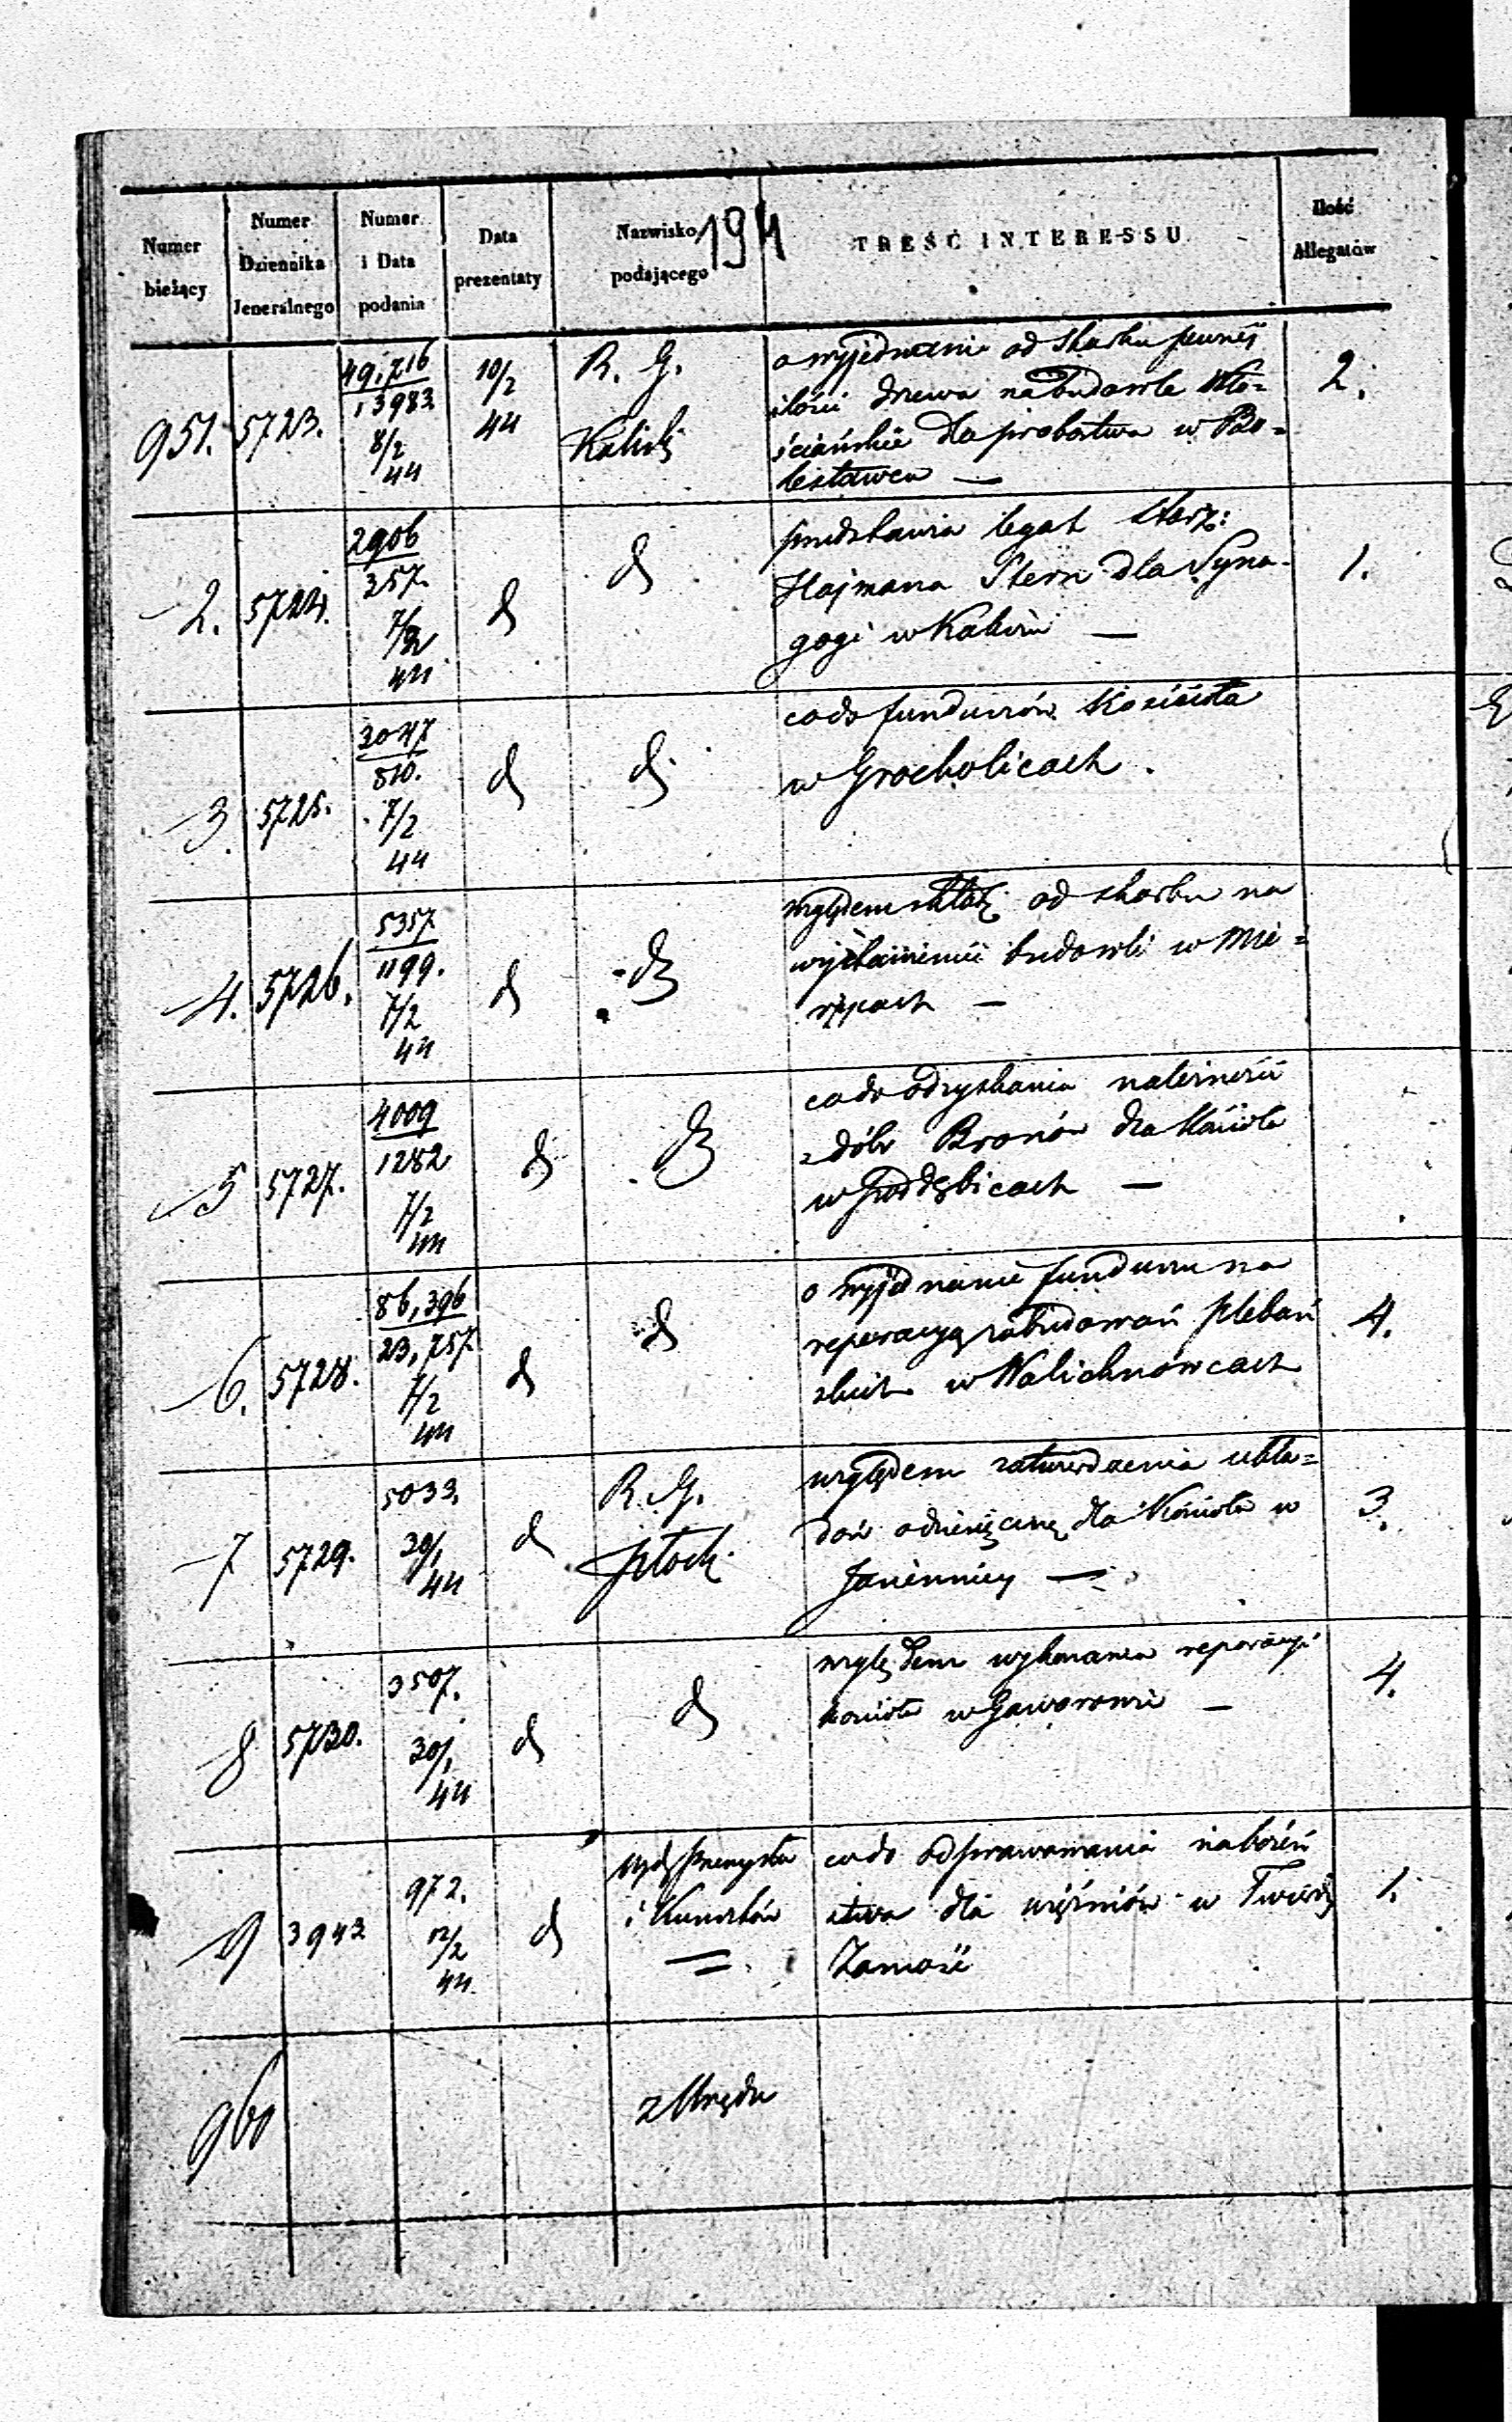 194
Numer bieżący
Numer Dziennika Jeneralnego
Numer i Data podania
Data prezentaty
Nazwisko podającego
TREŚĆ INTERESSU
Ilość Allegatów
951. 5723. 49.716 / 13983 8/2 44 10/2 44 R. G. Kalisk
o wyjednanie od Skarbu pewnéj
ilości drzewa na budowle Wło=
ściańskie dla probostwa w Bo=
lesławcu —
2.
2. 5724. 2906 / 357. 7/2 44 d d
przedstawia legat Starz:
Hajmana Stern dla Syna-
gogi w Kaliszu —
1.
3. 5725. 3047 / 810. 7/2 44 d d
co do funduszów Kościoła
w Grocholicach.
4. 5726. 5357 / 1199. 7/2 44 d d
względem składki od skarbu na
wystawienie budowli w Mie=
rzycach —
5 5727. 4009 / 1282 7/2 44 d d
co do odzyskania należności
z dóbr Bronów dla Kościoła
w Goddębicach —
6. 5728. 86,396 / 23,757 7/2 44 d d
o wyjednanie funduszu na
reperacyą zabudowań plebań
skich w Walichnowcach
4.
7 5729. 5033. 30/1 44 d R. G. Płock
względem zatwierdzenia ukła=
dów dla Kościoła w
3.
8 5730. 3507. 30/1 44 d d
względem wykonania reperacyi
kościoła w Gaworowie —
4.
9 3943 972. 12/2 44 d Wydz Przemysłu i Kunsztów
co do odprawowania nabożeń
stwa dla więźniów w Twierdz
Zamość
1.
960 z Urzędu